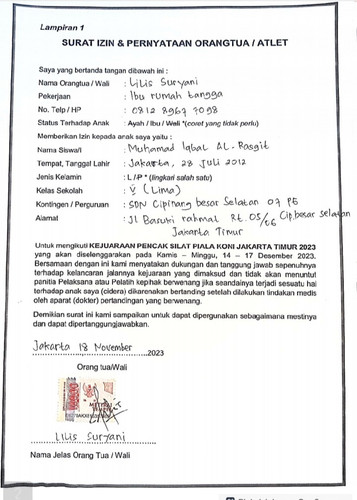 Lampiran 1
SURAT IZIN & PERNYATAAN ORANGTUA / ATLET
Saya yang bertanda tangan dibawah ini :
Nama Orangtua / Wali : Lilis Suryani
Pekerjaan : Ibu rumah tangga
No. Telp / HP : 0812 8967 7098
Status Terhadap Anak : Ayah / Ibu / Wali *(coret yang tidak perlu)
Memberikan Izin kepada anak saya yaitu :
Nama Siswa/i : Muhamad Iqbal AL-Rasgit
Tempat, Tanggal Lahir : Jakarta, 28 Juli 2012
Jenis Kelamin : L / P * (lingkari salah satu)
Kelas Sekolah : V (Lima)
Kontingen / Perguruan : SDN Cipinang besar Selatan 07 PG
Alamat : Jl Basuki rahmat Rt. 05/06 Cip. besar Selatan
Jakarta Timur
Untuk mengikuti KEJUARAAN PENCAK SILAT PIALA KONI JAKARTA TIMUR 2023
yang akan diselenggarakan pada Kamis – Minggu, 14 – 17 Desember 2023.
Bersamaan dengan ini kami menyatakan dukungan dan tanggung jawab sepenuhnya
terhadap kelancaran jalannya kejuaraan yang dimaksud dan tidak akan menuntut
panitia Pelaksana atau Pelatih kepihak berwenang jika seandainya terjadi sesuatu hal
terhadap anak saya (cidera) dikarenakan bertanding setelah dilakukan tindakan medis
oleh aparat (dokter) pertandingan yang berwenang.
Demikian surat ini kami sampaikan untuk dapat dipergunakan sebagaimana mestinya
dan dapat dipertanggungjawabkan.
Jakarta 18 November 2023
Orang tua/Wali
Lilis Suryani
Nama Jelas Orang Tua / Wali